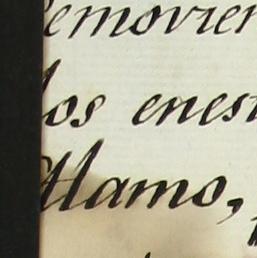 emovier
los enest
Alamo,